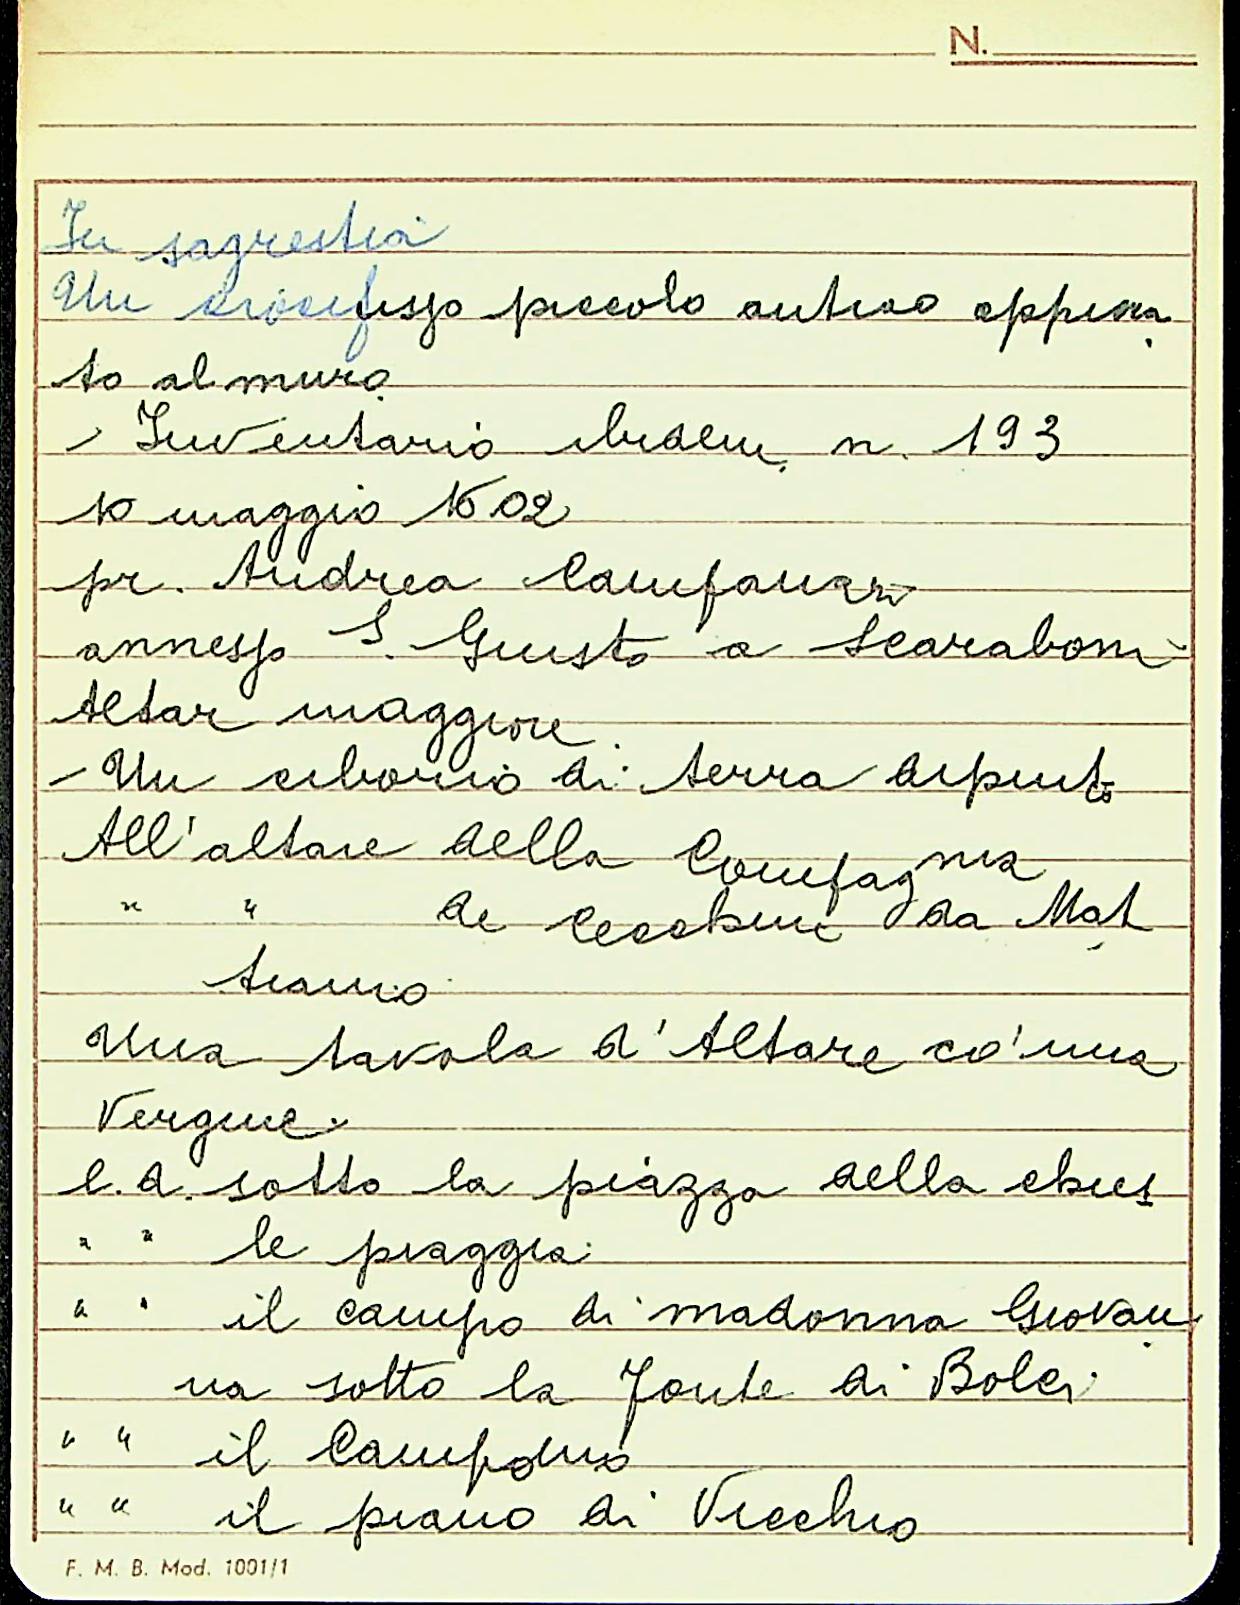 N.
In sagrestia
Un crocifisso piccolo antico appicca
to al muro
- Inventario ibidem, n. 193
10 maggio 1602
pr. Andrea Campanari
annesso S. Giusto a Scaraboni
Altar maggiore
- Un ciborio di terra dipinto
All'altare della Compagnia
" " de Cecchini da Mat
traino
Una tavola d'Altare co'una
Vergine.
l.d. sotto la piazza della chies
" " le piaggia
" " il campo di madonna Giovan
na sotto la Fonte di Bolci
" " il
" " il piano di Vecchio
F. M. B. Mod. 1001/1